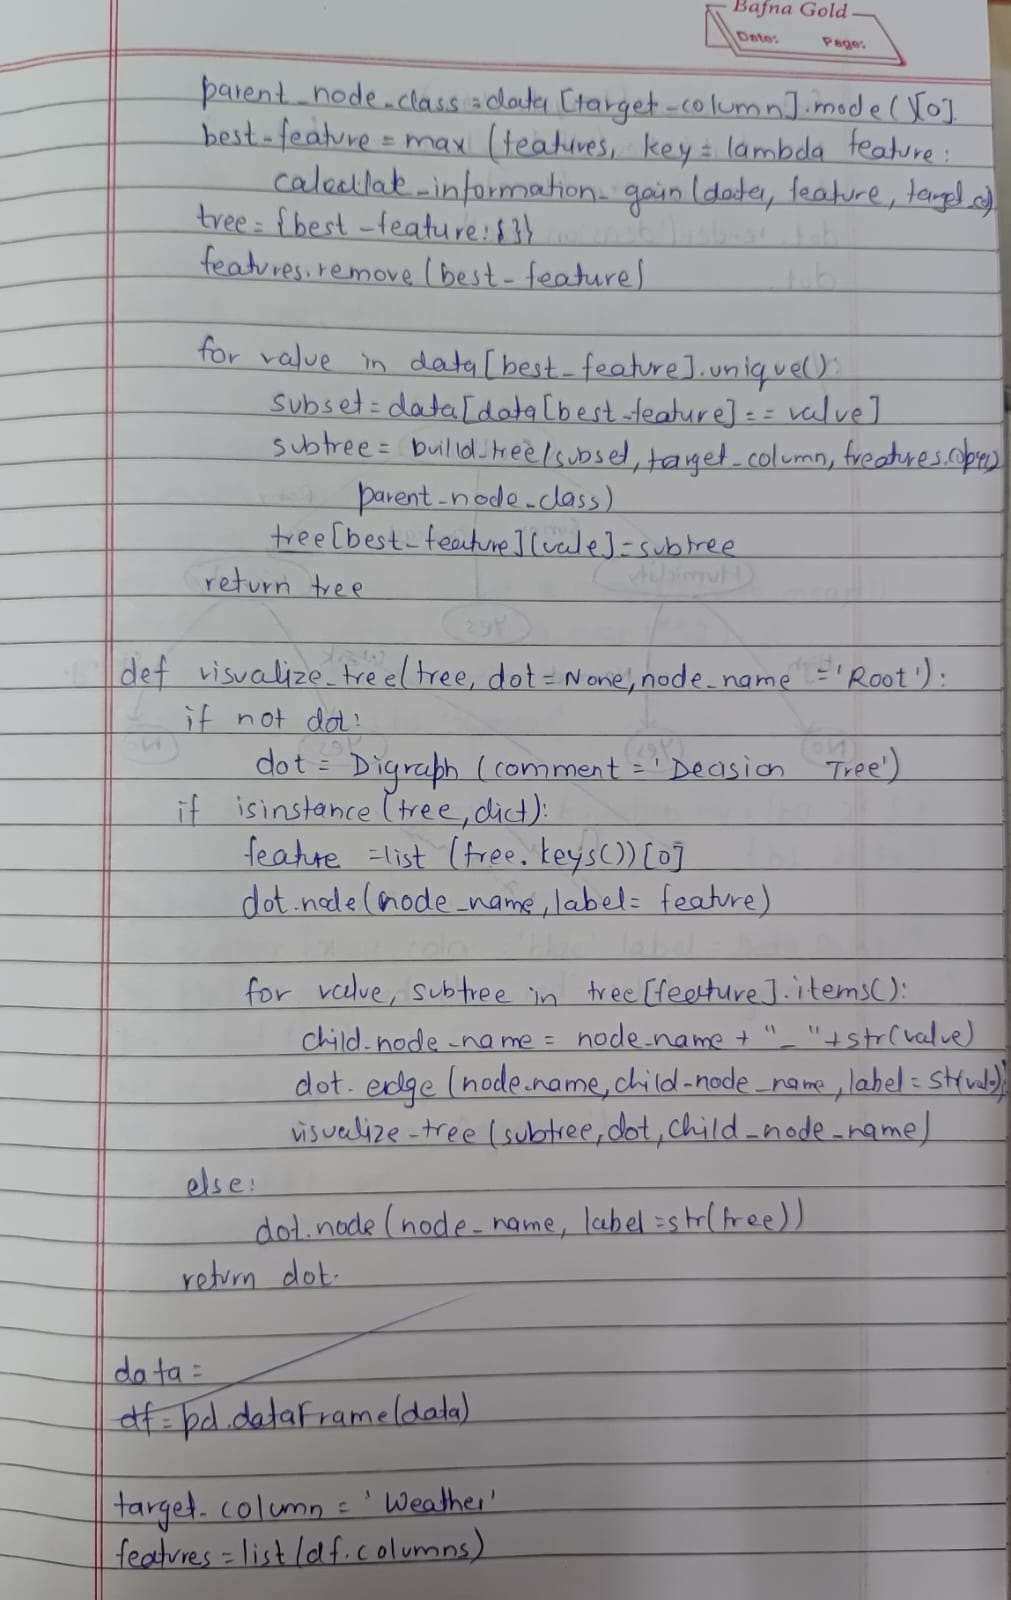 Bafna Gold
Date: Page:
parent_node_class = data [target_column].mode()[0]
best_feature = max (features, key = lambda feature:
calculate_information_gain (data, feature, target_c)
tree = {best_feature:{}}
features.remove (best_feature)
for value in data [best_feature].unique():
subset = data [data [best_feature] == value]
subtree = build_tree (subset, target_column, freatures.copy()
parent_node_class)
tree [best_feature] [vale] = subtree
return tree
def visualize_tree (tree, dot = None, node_name = 'Root'):
if not dot:
dot = Digraph (comment = 'Decision Tree')
if isinstance (tree, dict):
feature = list (tree.keys()) [0]
dot.node (node_name, label = feature)
for value, subtree in tree [feature].items():
child_node_name = node_name + "_" + str(value)
dot.edge (node_name, child_node_name, label = str(value))
visualize_tree (subtree, dot, child_node_name)
else:
dot.node (node_name, label = str(tree))
return dot.
data =
df = pd.dataFrame (data)
target_column = 'Weather'
features = list (df.columns)